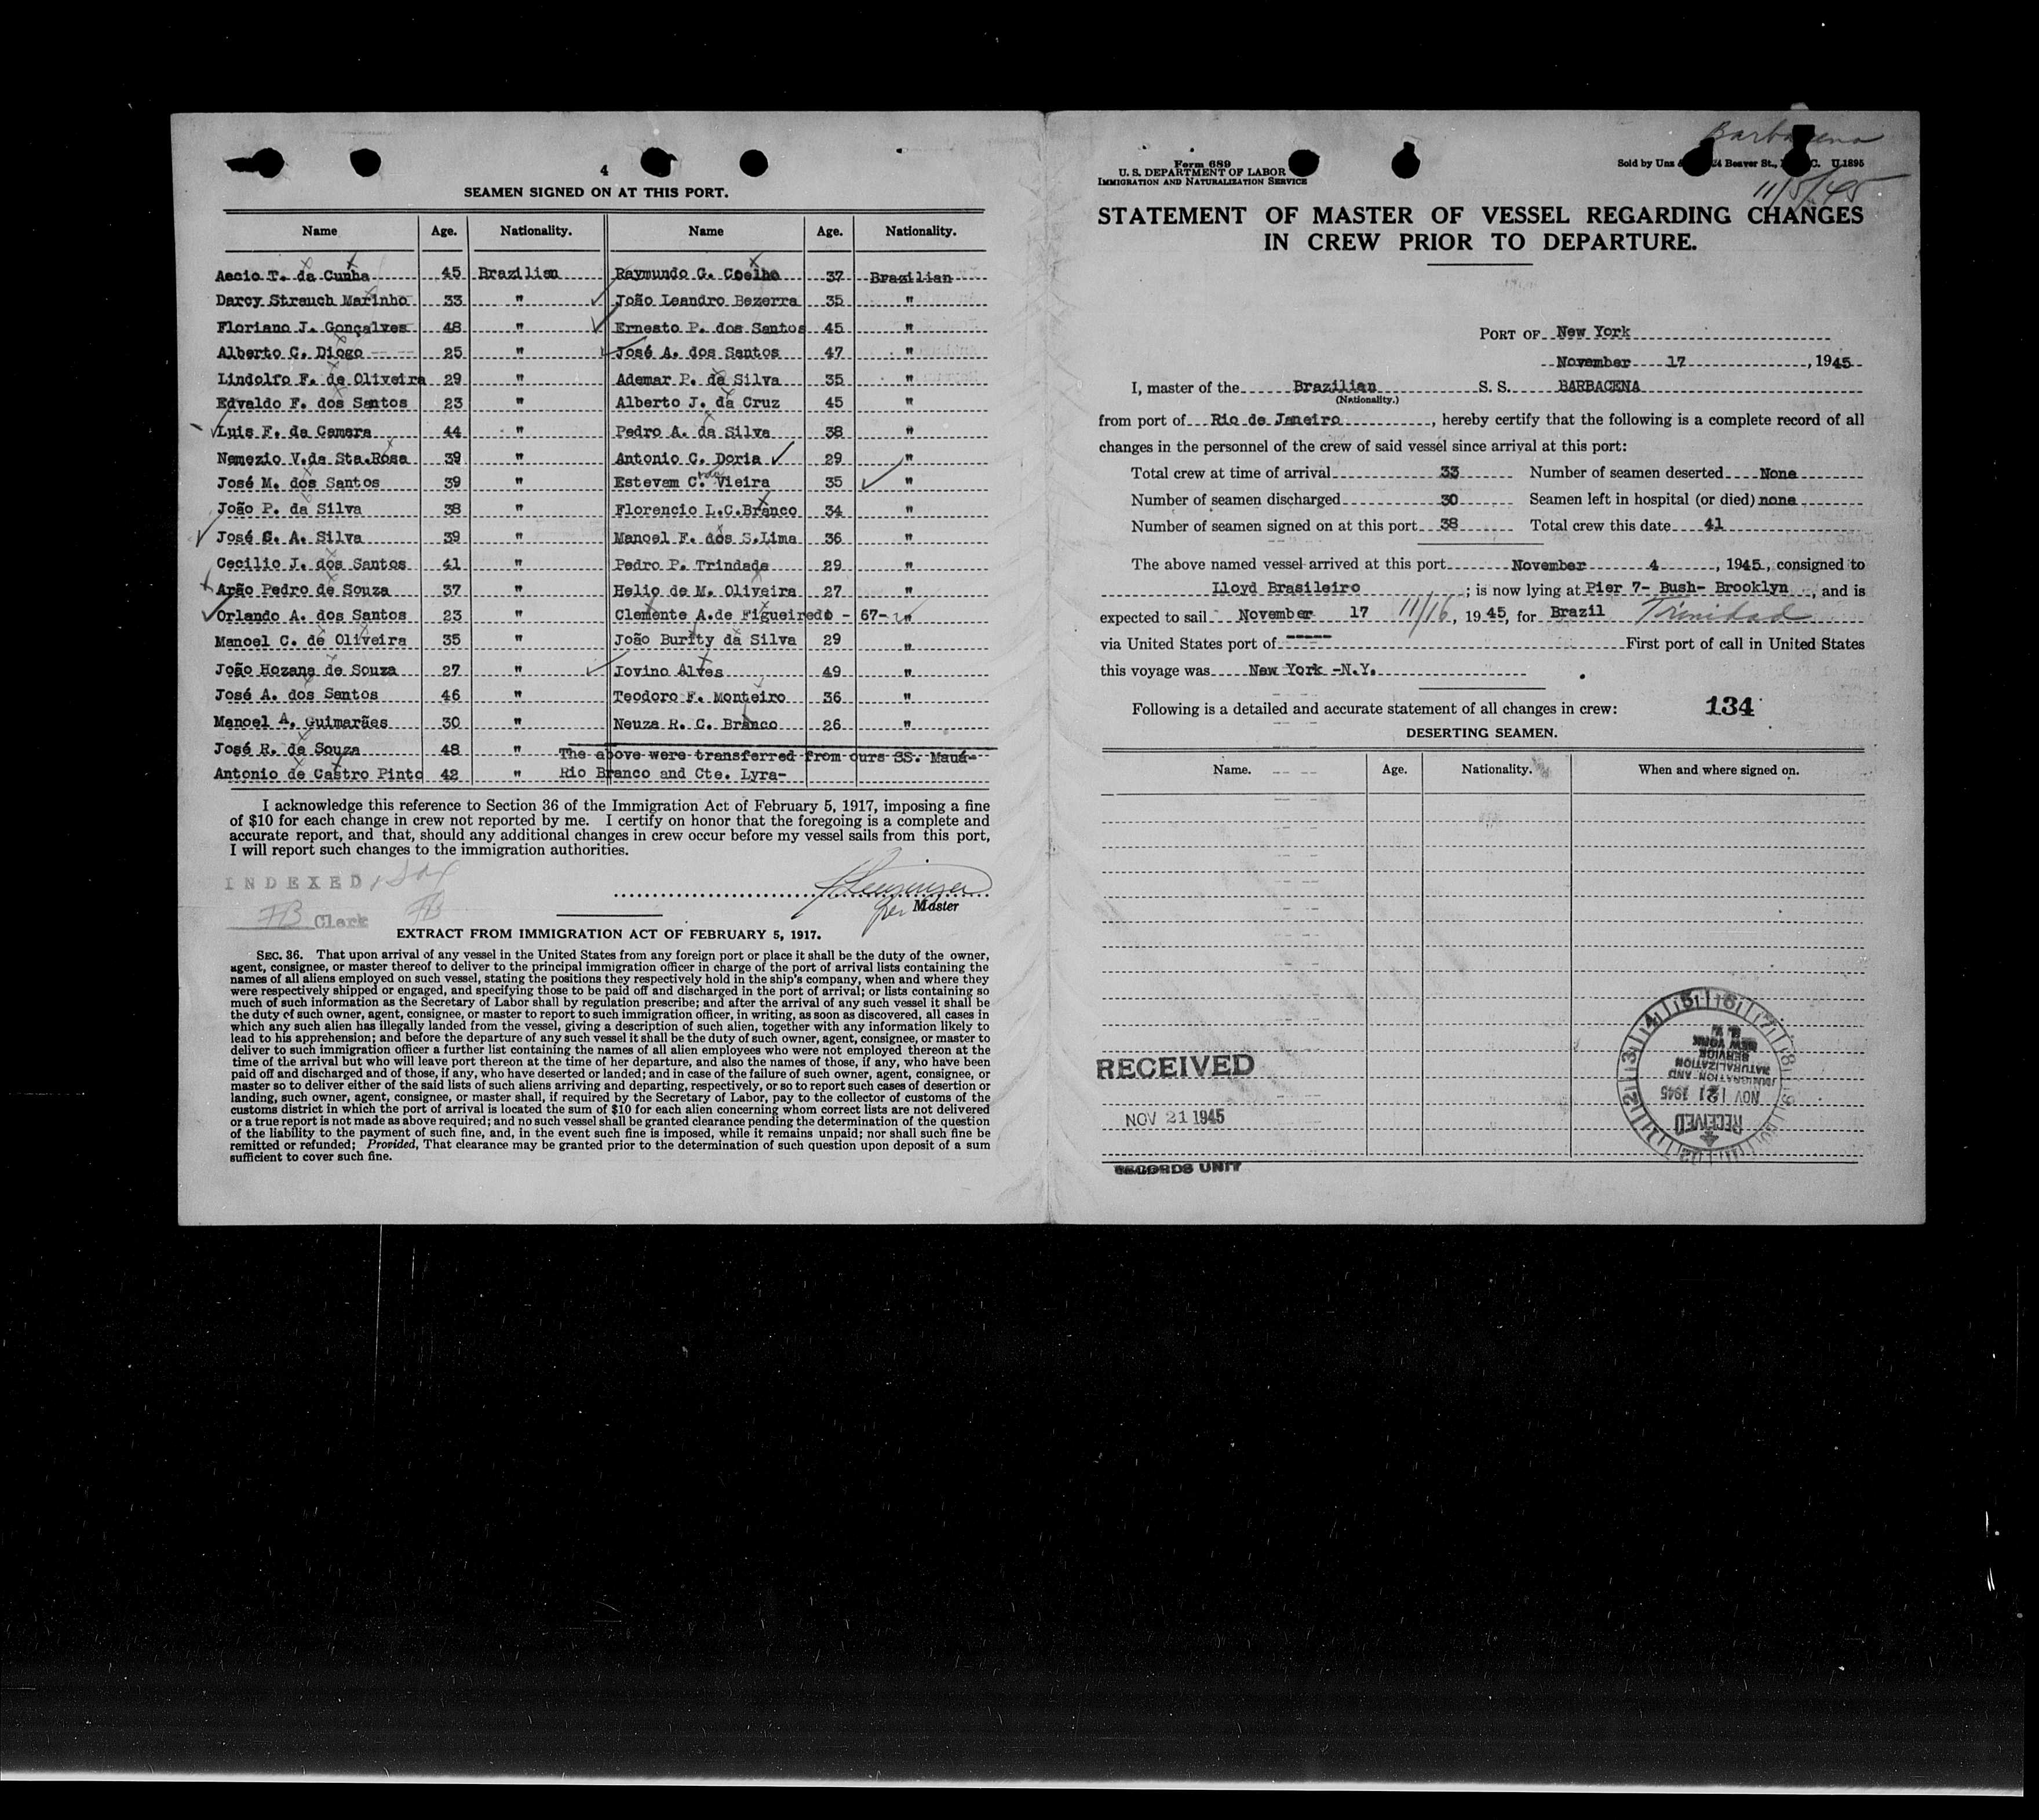 4
SEAMEN SIGNED ON AT THIS PORT.
Name Age. Nationality. Name Age. Nationality.
Aecio T. da Cunha 45 Brazilian Raymundo G. Coelho 37 Brazilian
Darcy Strauch Marinho 33 " João Leandro Bezerra 35 "
Floriano J. Gonçalves 48 " Ernesto P. dos Santos 45 "
Alberto C. Diogo 25 " José A. dos Santos 47 "
Lindolfo F. de Oliveira 29 " Ademar P. da Silva 35 "
Edvaldo F. dos Santos 23 " Alberto J. da Cruz 45 "
Luis F. da Camara 44 " Pedro A. da Silva 38 "
Nemezio V.da Sta.Rosa 39 " Antonio C. Doria 29 "
José M. dos Santos 39 " Estevam C. Vieira 35 "
João P. da Silva 38 " Florencio L.C.Branco 34 "
José S. A. Silva 39 " Manoel F. dos S.Lima 36 "
Cecilio J. dos Santos 41 " Pedro P. Trindade 29 "
Arão Pedro de Souza 37 " Helio de M. Oliveira 27 "
Orlando A. dos Santos 23 " Clemente A.de Figueiredo - 67- "
Manoel C. de Oliveira 35 " João Burity da Silva 29 "
João Hozana de Souza 27 " Jovino Alves 49 "
José A. dos Santos 46 " Teodoro F. Monteiro 36 "
Manoel A. Guimarães 30 " Neuza R. C. Branco 26 "
José R. de Souza 48 " The above were transferred from ours SS. Mauá-
Antonio de Castro Pinto 42 " Rio Branco and Cte. Lyra-
I acknowledge this reference to Section 36 of the Immigration Act of February 5, 1917, imposing a fine
of $10 for each change in crew not reported by me. I certify on honor that the foregoing is a complete and
accurate report, and that, should any additional changes in crew occur before my vessel sails from this port,
I will report such changes to the immigration authorities.
INDEXED
FB Clerk FB
per Master
EXTRACT FROM IMMIGRATION ACT OF FEBRUARY 5, 1917.
SEC. 36. That upon arrival of any vessel in the United States from any foreign port or place it shall be the duty of the owner,
agent, consignee, or master thereof to deliver to the principal immigration officer in charge of the port of arrival lists containing the
names of all aliens employed on such vessel, stating the positions they respectively hold in the ship's company, when and where they
were respectively shipped or engaged, and specifying those to be paid off and discharged in the port of arrival; or lists containing so
much of such information as the Secretary of Labor shall by regulation prescribe; and after the arrival of any such vessel it shall be
the duty of such owner, agent, consignee, or master to report to such immigration officer, in writing, as soon as discovered, all cases in
which any such alien has illegally landed from the vessel, giving a description of such alien, together with any information likely to
lead to his apprehension; and before the departure of any such vessel it shall be the duty of such owner, agent, consignee, or master to
deliver to such immigration officer a further list containing the names of all alien employees who were not employed thereon at the
time of the arrival but who will leave port thereon at the time of her departure, and also the names of those, if any, who have been
paid off and discharged and of those, if any, who have deserted or landed; and in case of the failure of such owner, agent, consignee, or
master so to deliver either of the said lists of such aliens arriving and departing, respectively, or so to report such cases of desertion or
landing, such owner, agent, consignee, or master shall, if required by the Secretary of Labor, pay to the collector of customs of the
customs district in which the port of arrival is located the sum of $10 for each alien concerning whom correct lists are not delivered
or a true report is not made as above required; and no such vessel shall be granted clearance pending the determination of the question
of the liability to the payment of such fine, and, in the event such fine is imposed, while it remains unpaid; nor shall such fine be
remitted or refunded; Provided, That clearance may be granted prior to the determination of such question upon deposit of a sum
sufficient to cover such fine.
Barbacena
Form 689
U. S. DEPARTMENT OF LABOR
IMMIGRATION AND NATURALIZATION SERVICE
Sold by Unz Beaver St., U.1895
11/5/45
STATEMENT OF MASTER OF VESSEL REGARDING CHANGES
IN CREW PRIOR TO DEPARTURE.
PORT OF New York
November 17, 1945
I, master of the Brazilian S. S. BARBACENA
(Nationality.)
from port of Rio de Janeiro, hereby certify that the following is a complete record of all
changes in the personnel of the crew of said vessel since arrival at this port:
Total crew at time of arrival 33 Number of seamen deserted None
Number of seamen discharged 30 Seamen left in hospital (or died) none
Number of seamen signed on at this port 38 Total crew this date 41
The above named vessel arrived at this port November 4, 1945, consigned to
Lloyd Brasileiro; is now lying at Pier 7- Bush- Brooklyn, and is
expected to sail November 17 11/16, 1945, for Brazil Trinidad
via United States port of ----- First port of call in United States
this voyage was New York -N.Y.
Following is a detailed and accurate statement of all changes in crew: 134
DESERTING SEAMEN.
Name. Age. Nationality. When and where signed on.
RECEIVED
NOV 21 1945
RECORDS UNIT
RECEIVED
NOV 21 1945
IMMIGRATION AND
NATURALIZATION
SERVICE
NEW YORK
N. Y.